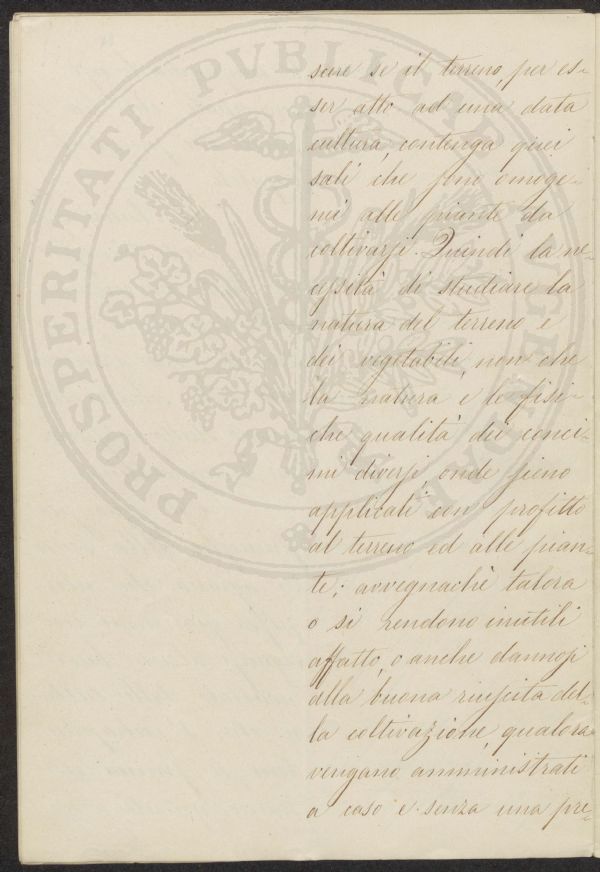 scere se il terreno, per es-
ser atto ad una data
cultura, contenga quei
sali che sono omoge-
nei alle piante da
coltivarsi. Quindi la ne-
cessità di studiare la
natura del terreno e
dei vegetabili, non che
la natura e le fisi-
che qualità dei conci-
mi diversi, onde sieno
applicati con profitto
al terreno ed alle pian-
te; avvegnachè talora
o si rendono inutili
affatto, o anche dannosi
alla buona riuscita del-
la coltivazione, qualora
vengano amministrati
a caso e senza una pre-
PROSPERITATI PVBLICAE AVGENDAE